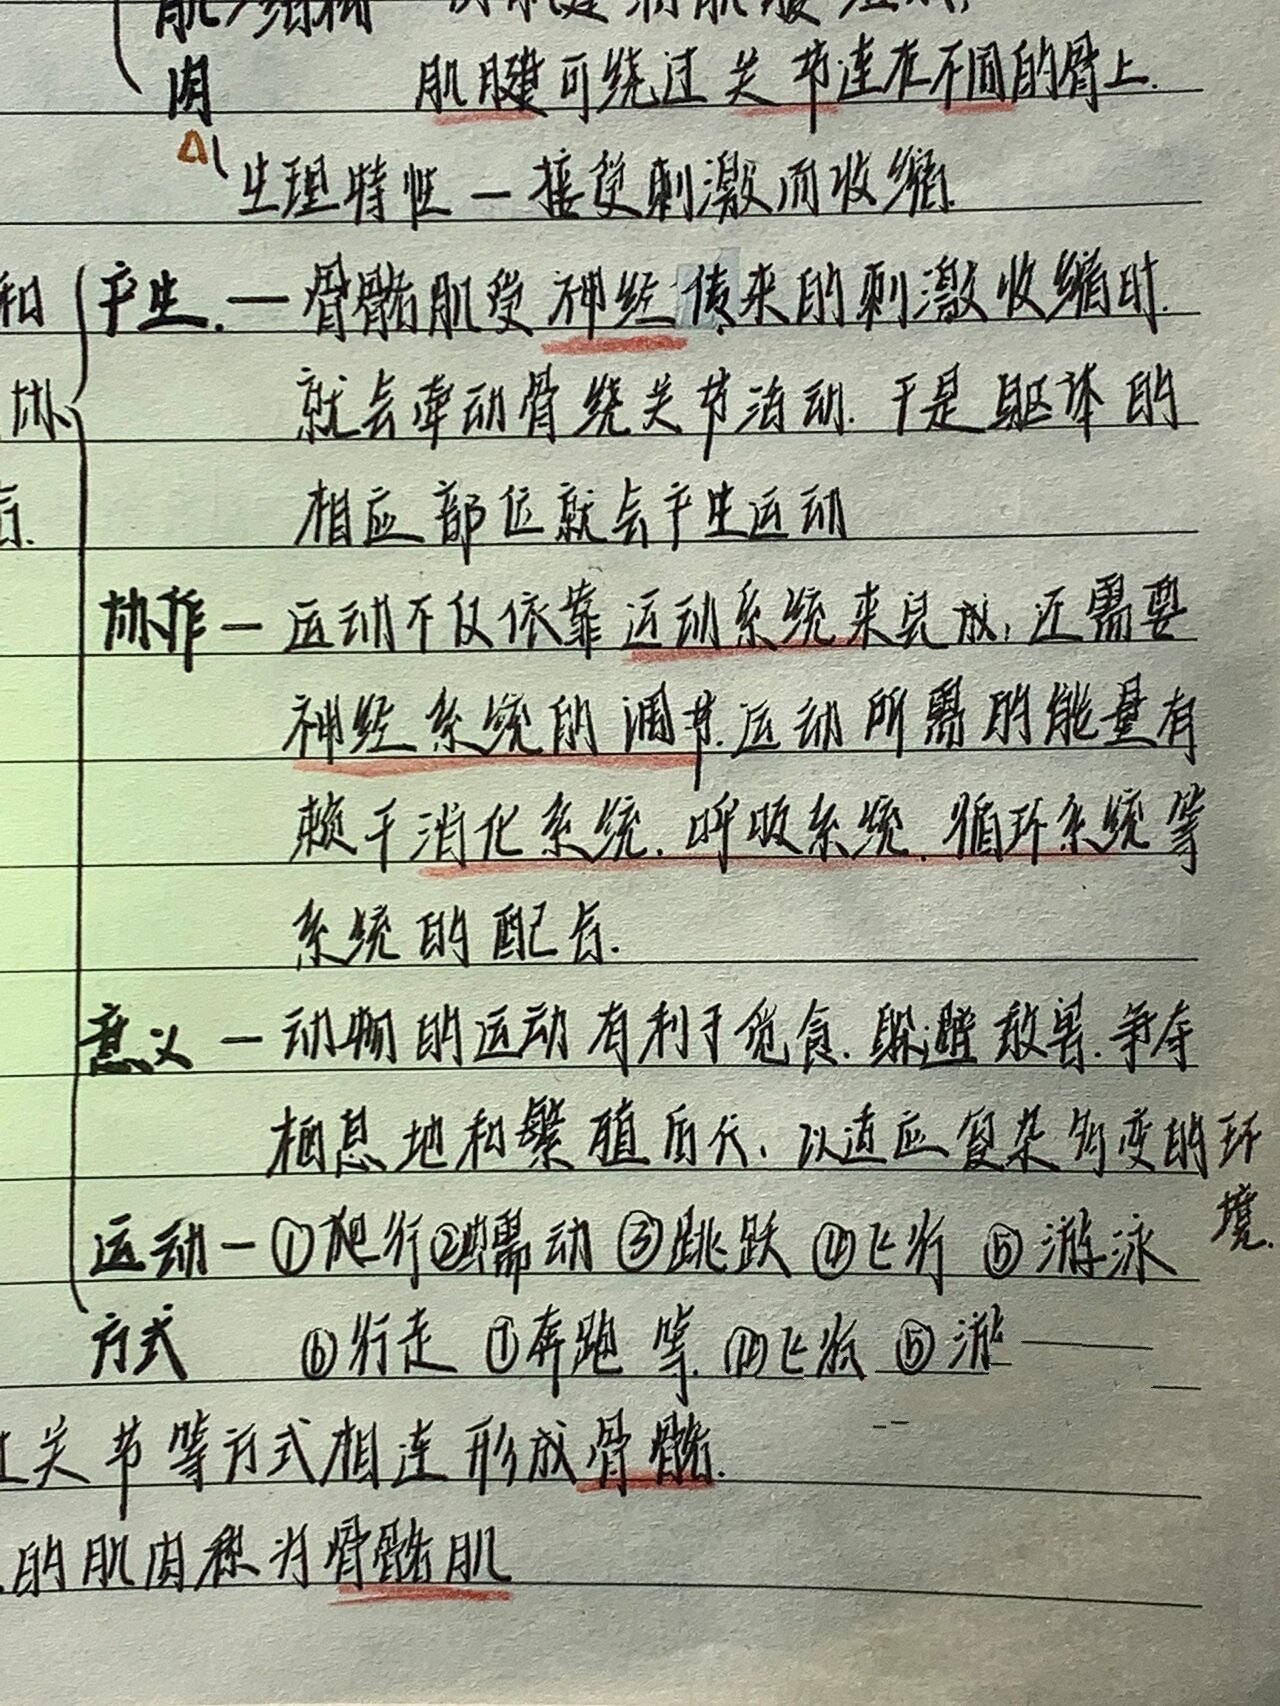 肌腱可绕过关节连在不同的骨上.
肉
生理特性 — 接受刺激而收缩.
和 产生. — 骨骼肌受神经传来的刺激收缩时.
协 就会牵动骨绕关节活动. 于是躯体的
相应部位就会产生运动
协作 — 运动不仅依靠运动系统来完成, 还需要
神经系统的调节. 运动所需的能量有
赖于消化系统. 呼吸系统. 循环系统等
系统的配合.
意义 — 动物的运动有利于觅食. 躲避敌害. 争夺
栖息地和繁殖后代, 以适应复杂多变的环
境.
运动 — ①爬行②蠕动 ③跳跃 ④飞行 ⑤游泳
方式 ⑥行走 ⑦奔跑 等. ④飞 ⑤游
关节等方式相连形成骨骼.
的肌肉称为骨骼肌